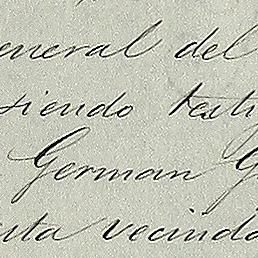 eneral del
siendo testi
German G
sta vecinda